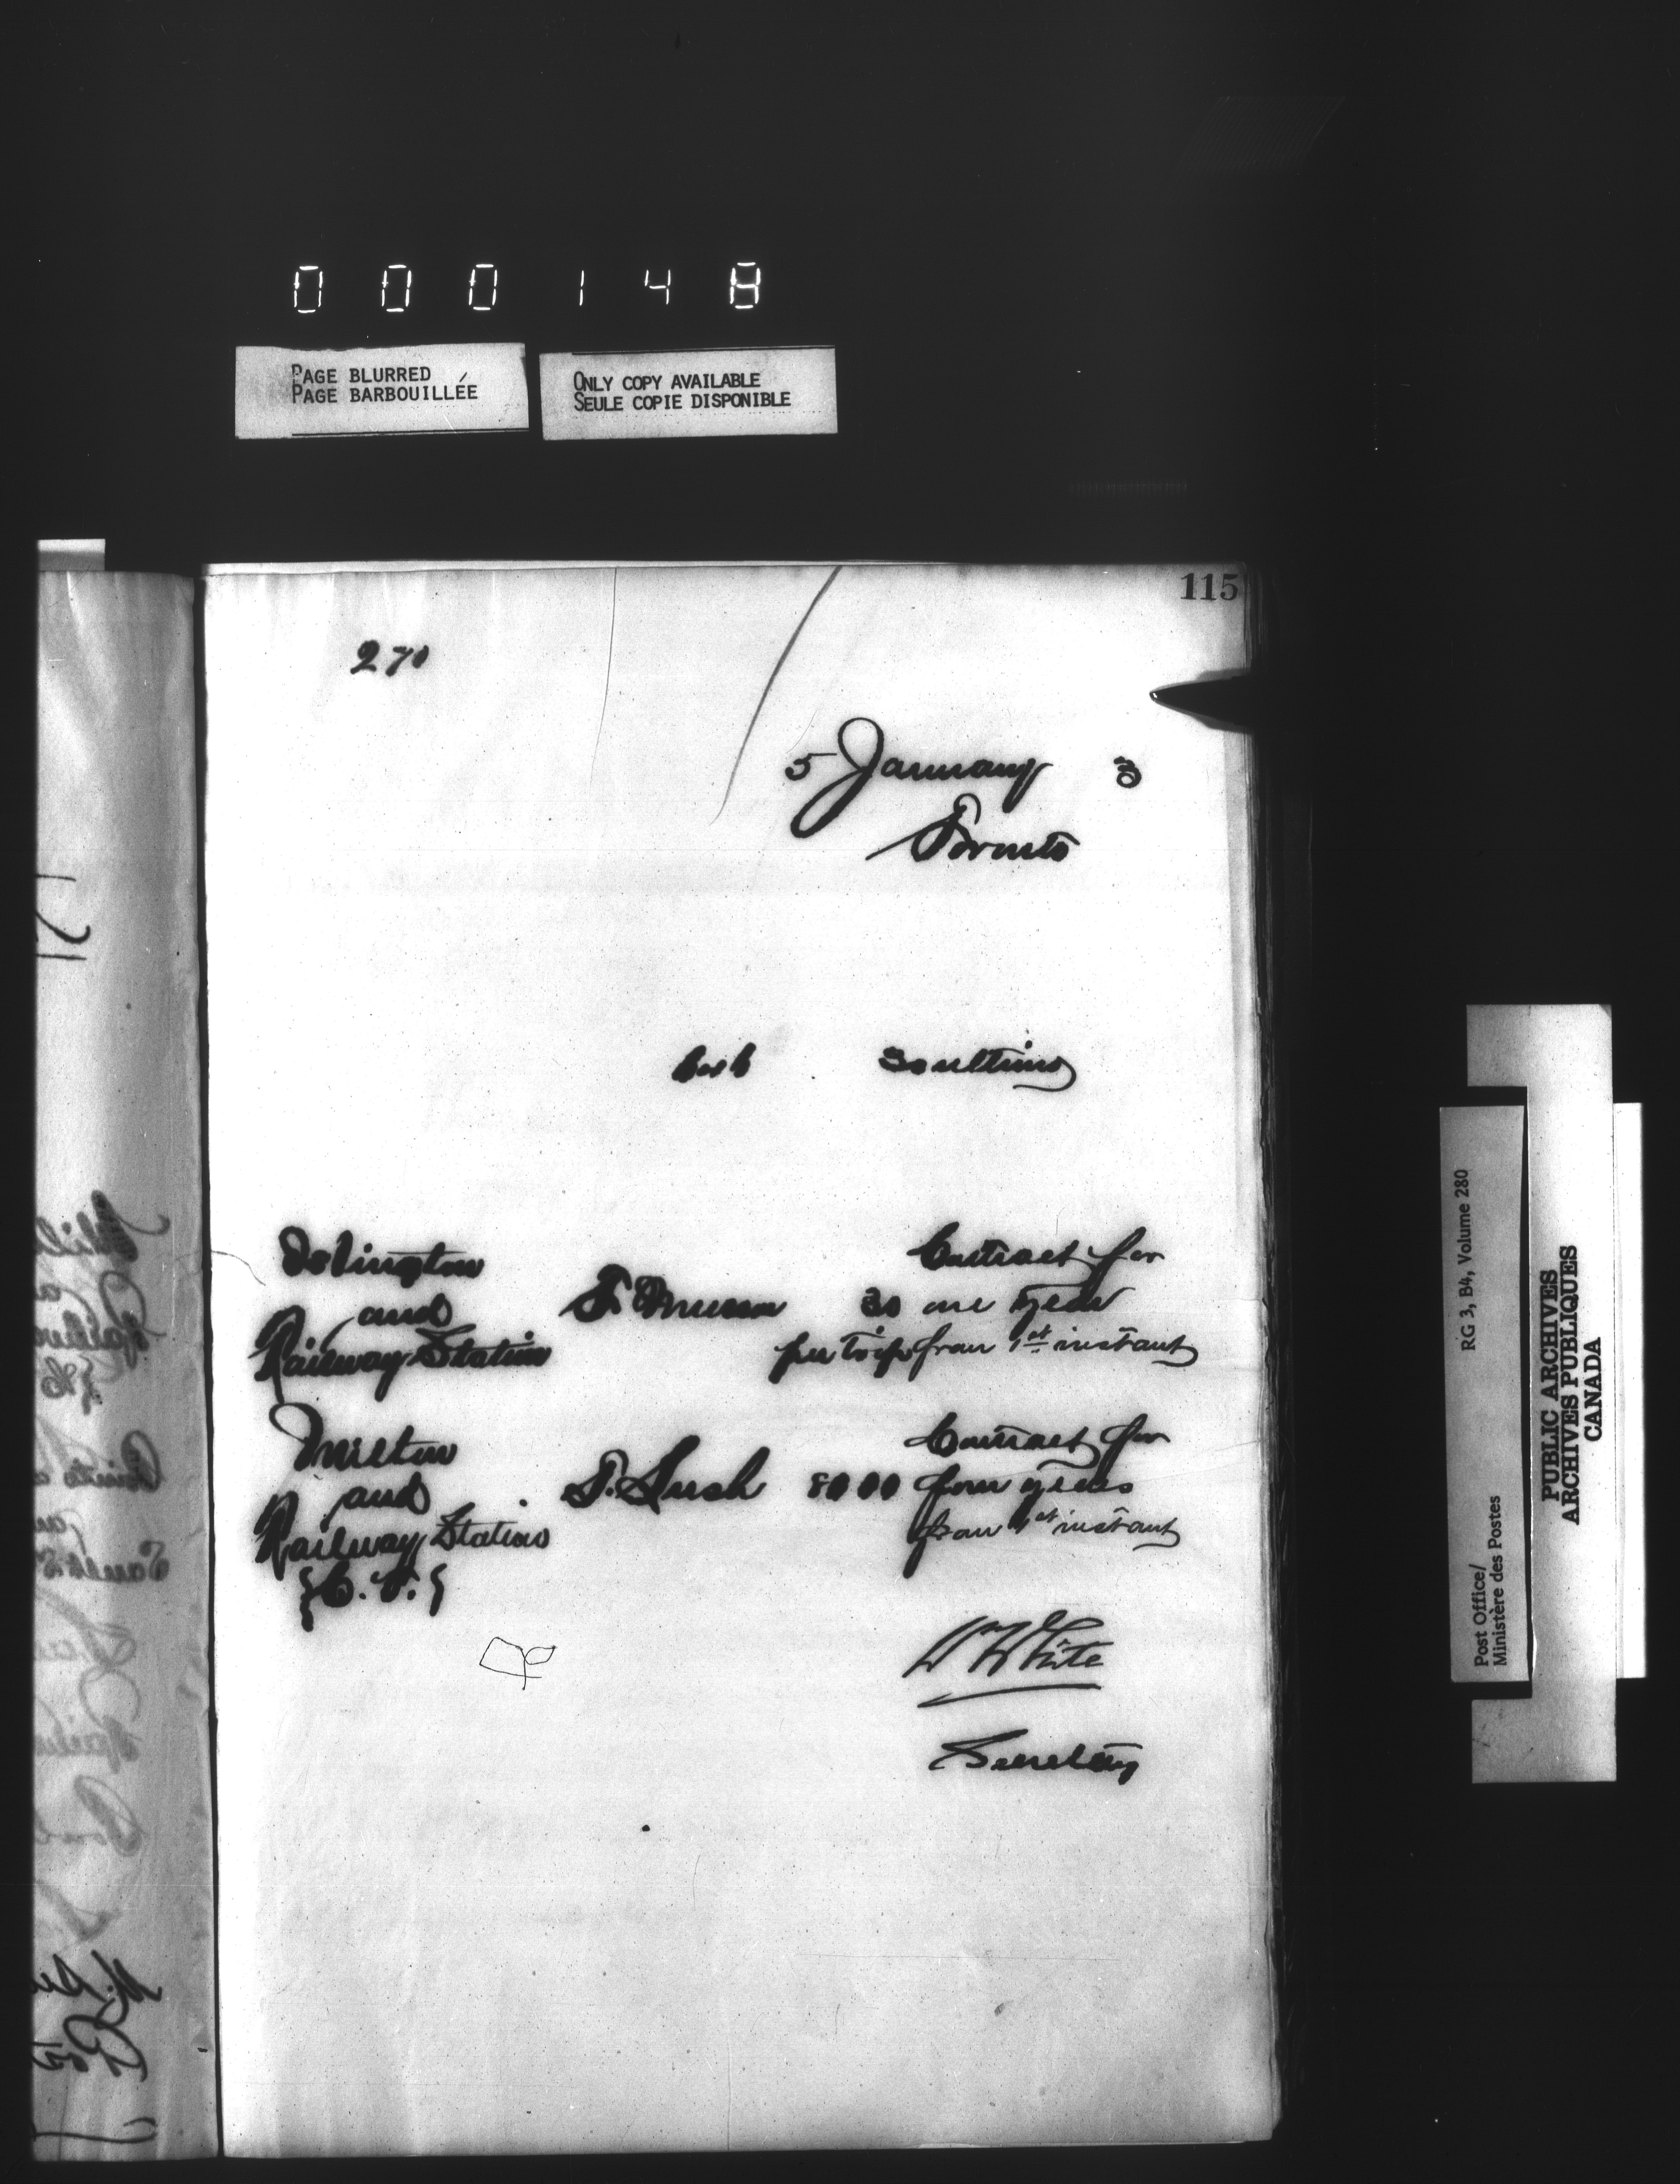 000148
PAGE BLURRED
PAGE BARBOUILLÉE
ONLY COPY AVAILABLE
SEULE COPIE DISPONIBLE
115
270
5 January 3
Toronto
30 ultimo
Islington
and
Railway Station
T. Musson
30
per trip
Contract for
one year
from 1st instant
Milton
and
Railway Station
T. Lush
80 00
Contract for
four years
from 1st instant
Wm White
Secretary
RG 3, B4, Volume 280
Post Office/
Ministère des Postes
PUBLIC ARCHIVES
ARCHIVES PUBLIQUES
CANADA